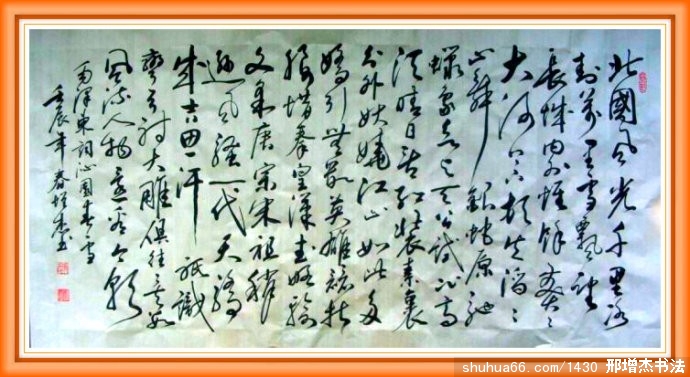 北國风光千里冰
封萬里雪飄望
长城内外惟餘莽〻
大河上下頓失滔〻
山舞銀蛇原馳
蠟象欲与天公試比高
須晴日看红裝素裹
分外妖嬈江山如此多
嬌引無數英雄競折
腰惜秦皇漢武略輸
文采唐宗宋祖稍
遜风騷一代天驕
成吉思汗祇識
彎弓射大雕俱往矣數
风流人物还看今朝
毛澤東詞沁園春雪
壬辰年春增杰書
shuhua66.com/1430 邢增杰书法